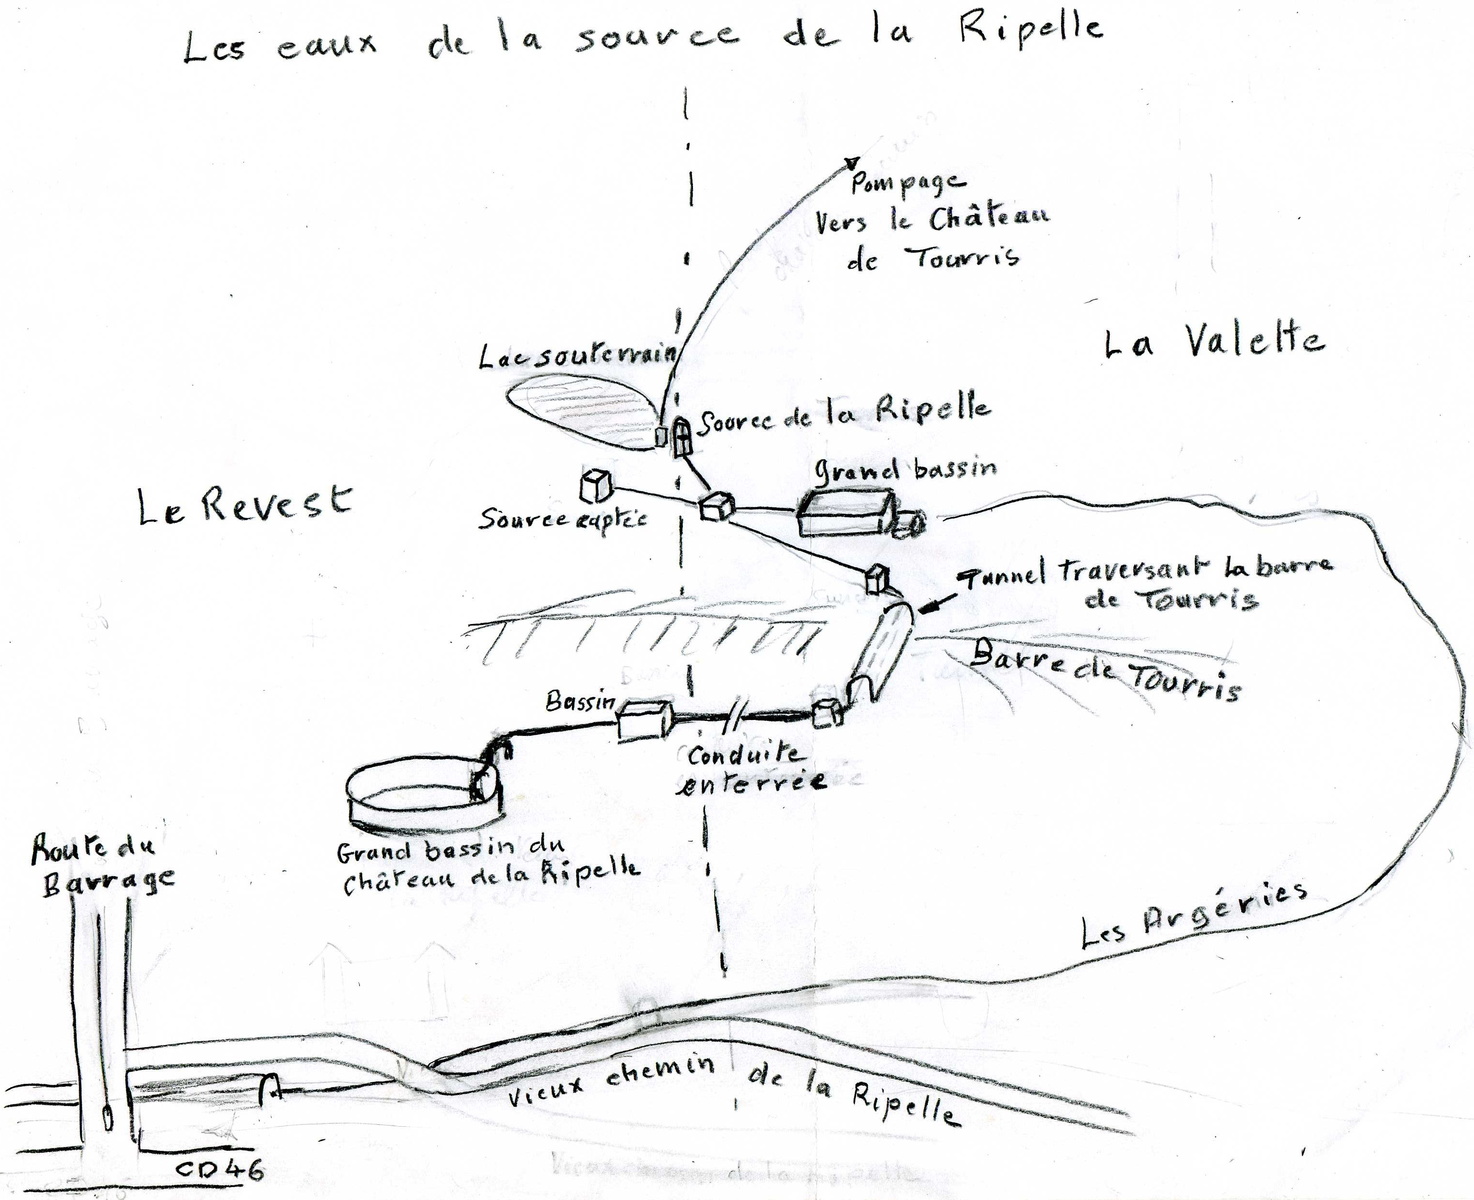 Les eaux de la source de la Ripelle
Pompage
Vers le Château
de Tourris
La Valette
Lac souterrain
Source de la Ripelle
Grand bassin
Le Revest
Source captée
Tunnel traversant la barre
de Tourris
Barre de Tourris
Bassin
Conduite
enterrée
Grand bassin du
Château de la Ripelle
Route du
Barrage
Les Argéries
Vieux chemin de la Ripelle
CD 46